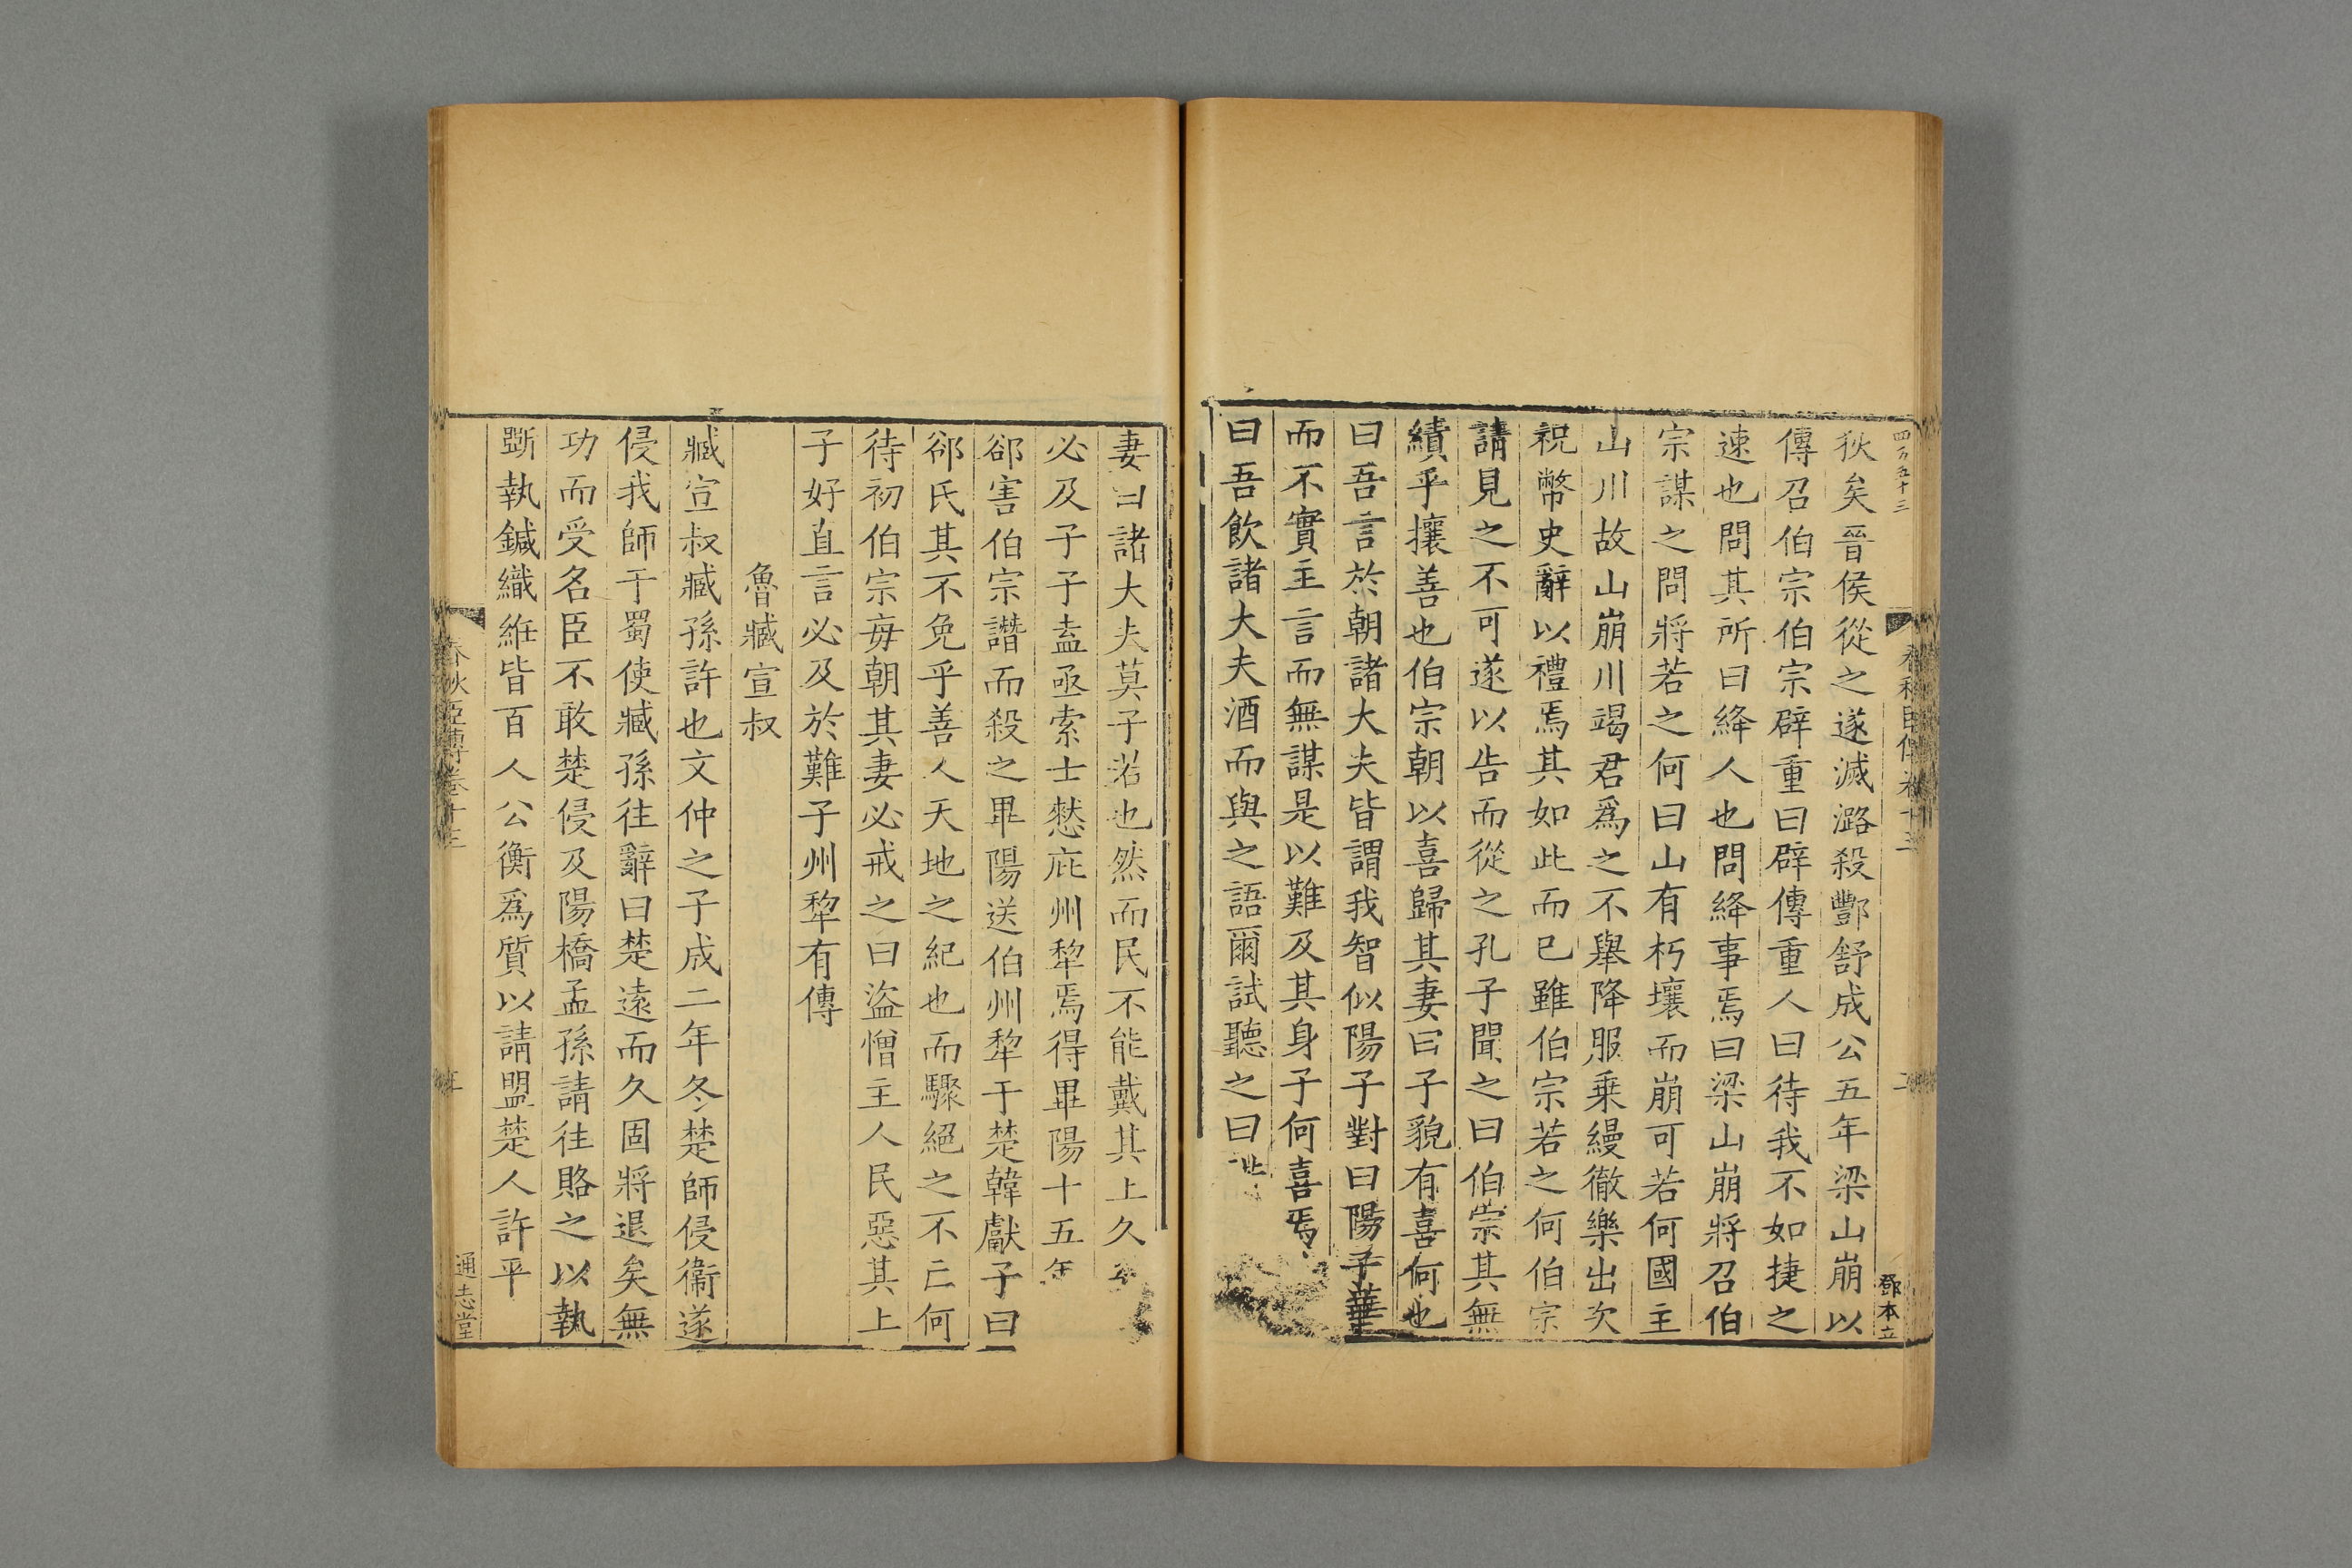 四百五十三
狄矣晉侯從之遂滅潞殺酆舒成公五年梁山崩以
傳召伯宗伯宗辟重曰辟傳重人曰待我不如捷之
速也問其所曰絳人也問絳事焉曰梁山崩將召伯
宗謀之問將若之何曰山有朽壤而崩可若何國主
山川故山崩川竭君爲之不舉降服乗縵徹樂出次
祝幣史辭以禮焉其如此而已雖伯宗若之何伯宗
請見之不可遂以告而從之孔子聞之曰伯宗其無
績乎攘善也伯宗朝以喜歸其妻曰子貌有喜何也
曰吾言於朝諸大夫皆謂我智似陽子對曰陽子華
而不實主言而無謀是以難及其身子何喜焉
曰吾飲諸大夫酒而與之語爾試聽之曰
妻曰諸大夫莫子若也然而民不能戴其上久
必及子子盍亟索士憖庇州犂焉得畢陽十五年
郤害伯宗譖而殺之畢陽送伯州犂于楚韓獻子曰
郤氏其不免乎善人天地之紀也而驟絕之不亡何
待初伯宗毎朝其妻必戒之曰盜憎主人民惡其上
子好直言必及於難子州犂有傳
魯臧宣叔
臧宣叔臧孫許也文仲之子成二年冬楚師侵衞遂
侵我師于蜀使臧孫往辭曰楚遠而久固將退矣無
功而受名臣不敢楚侵及陽橋孟孫請往賂之以執
斲執鍼織紝皆百人公衡爲質以請盟楚人許平
春秋臣傳卷十三
二
鄧本立
春秋臣傳卷十三
通志堂